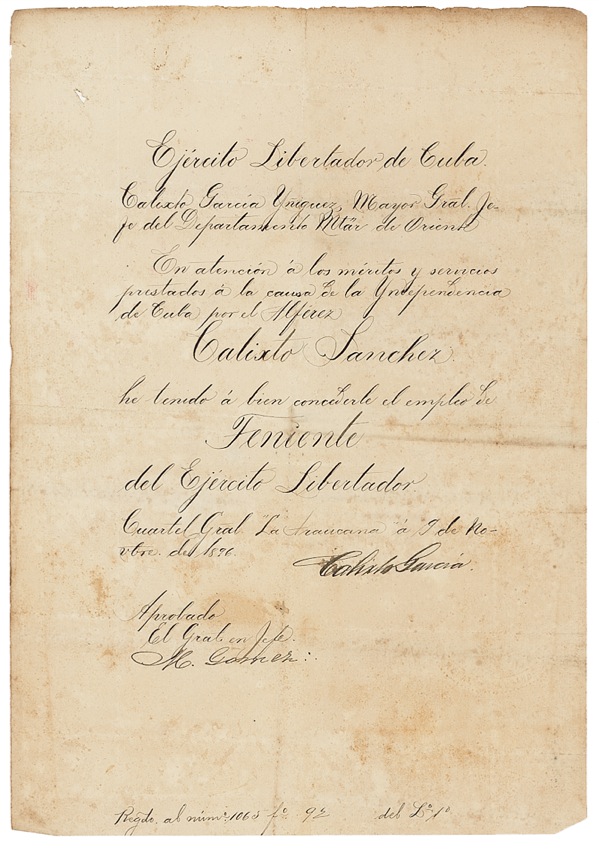 Ejército Libertador de Cuba.
Calixto García Yñiguez, Mayor Gral. Je-
fe del Departamento Mtar de Oriente
En atención á los méritos y servicios
prestados á la causa de la Yndependencia
de Cuba por el Alférez
Calixto Sanchez.
he tenido á bien concederle el empleo de
Teniente
del Ejército Libertador.
Cuartel Gral. "La Araucana" á 9 de No-
vbre. de 1896.
Calixto García.
Aprobado
El Gral. en Jefe.
M. Gómez:.
Regdo. al núm. 1065 fo. 92 del Lo. 1o.